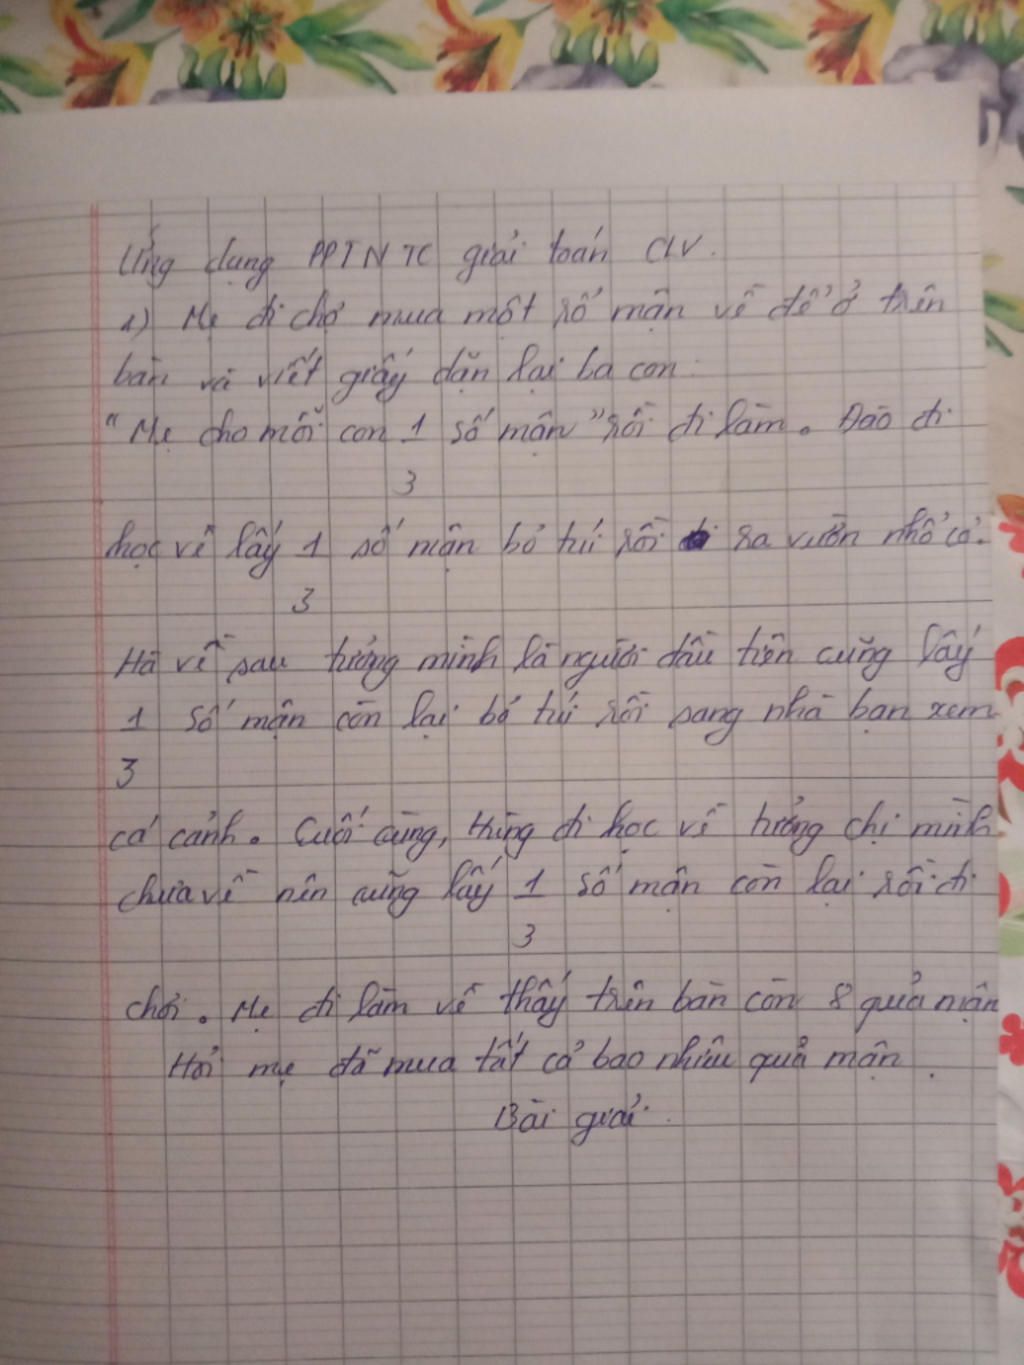 Ứng dụng PPTNTC giải toán CLV.
1) Mẹ đi chợ mua một số mận về để ở trên
bàn và viết giấy dặn lại ba con:
"Mẹ cho mỗi con 1 số mận" rồi đi làm. Đào đi
3
học về lấy 1 số mận bỏ túi rồi ra vườn nhổ cỏ.
3
Hà về sau tưởng mình là người đầu tiên cũng lấy
1 số mận còn lại bỏ túi rồi sang nhà bạn xem
3
cá cảnh. Cuối cùng, Hùng đi học về tưởng chị mình
chưa về nên cũng lấy 1 số mận còn lại rồi đi
3
chơi. Mẹ đi làm về thấy trên bàn còn 8 quả mận
Hỏi mẹ đã mua tất cả bao nhiêu quả mận.
Bài giải.